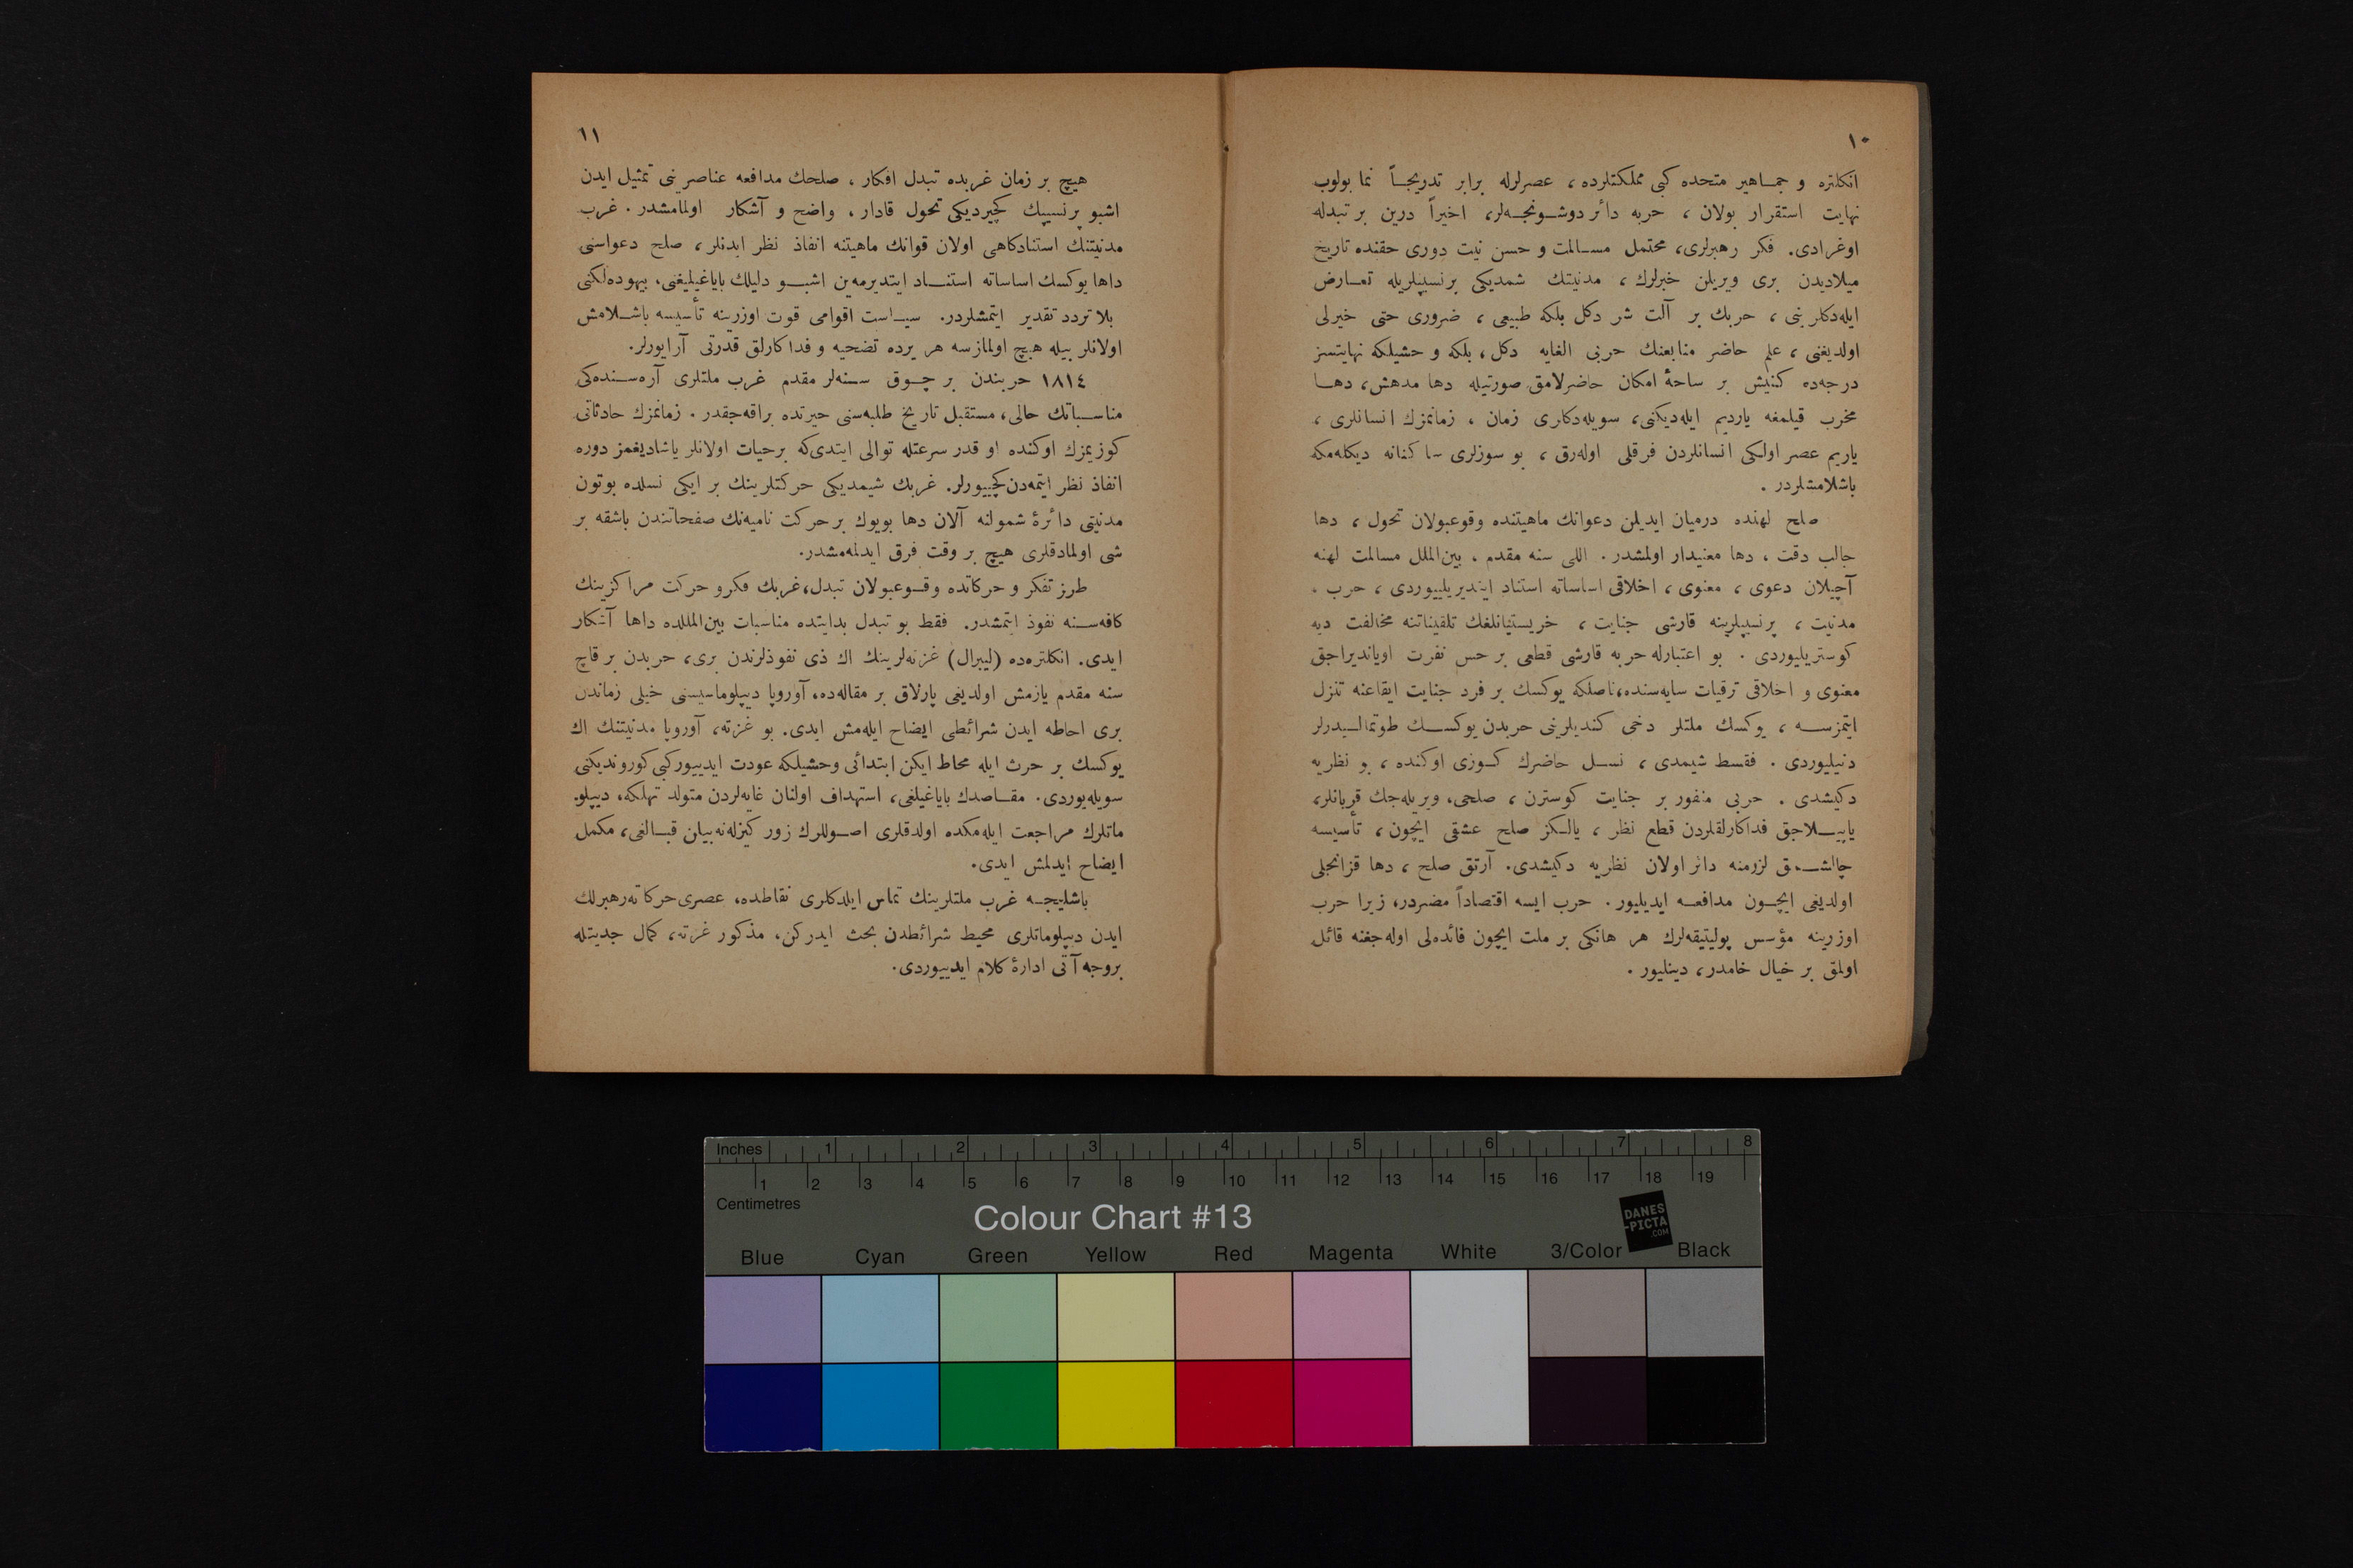 ١٠
انكلتره و جمـاهير متحده كبى مملكتلرده ، عصرلرله برابر تدريجـاً نما بولوب
نهايت استقرار بولان ، حربه دائر دوشـونجـه‌لر، اخيراً درين بر تبدله
اوغرادى. فكر رهبرلرى، محتمل مسـالمت و حسن نيت دورى حقنده تاريخ
ميلاديدن برى ويريلن خبرلرك ، مدنيتك شمديكى پرنسيپلريله تعـارض
ايله‌دكلرينى ، حربك بر آلت شر دكل بلكه طبيعى ، ضرورى حتى خيرلى
اولديغنى ، علم حاضر منابعنك حربى الغايه دكل ، بلكه وحشيلكه نهايتسز
درجه‌ده كنيش بر ساحۀ امكان حاضرلامق صورتيله دها مدهش، دهـا
مخرب قيلمغه يارديم ايله‌ديكنى، سويله‌دكلرى زمان ، زمانمزك انسانلرى ،
ياريم عصر اولكى انسانلردن فرقلى اوله‌رق ، بو سوزلرى ساكتانه ديكله‌مكه
باشلامشلردر .
صلح لهنده درميان ايديلن دعوانك ماهيتنده وقوعبولان تحول ، دها
جالب دقت ، دها معنيدار اولمشدر . اللى سنه مقدم ، بين‌الملل مسالمت لهنه
آچيلان دعوى ، معنوى ، اخلاقى اساساته استناد ايتديريلييوردى ، حرب ،
مدنيت ، پرنسيپلرينه قارشى جنايت ، خريستيانلغك تلقيناتنه مخالفت ديه
كوستريليوردى . بو اعتبارله حربه قارشى قطعى بر حس نفرت اوياندیراجق
معنوى و اخلاقى ترقيات سايه‌سنده، ناصلكه يوكسك بر فرد جنايت ايقاعنه تنزل
ايتمزسـه ، يوكسك ملتلر دخى كنديلرينى حربدن يوكسـك طوتمالـيدرلر
دنيليوردى . فقـط شيمدى ، نسـل حاضرك كـوزى اوكنده ، بو نظريه
دكيشدى . حربى منفور بر جنايت كوسترن ، صلحى، ويريله‌جك قربانلر،
ياپيـلاجق فداكارلقلردن قطع نظر ، يالـكز صلح عشقى ايچون ، تأسيسه
چالشـمق لزومنه دائر اولان نظريه دكيشدى. آرتق صلح ، دها قزانجلى
اولديغى ايچـون مدافعـه ايديليور. حرب ايسه اقتصاداً مضردر، زيرا حرب
اوزرينه مؤسس پوليتيقه‌لرك هر هانكى بر ملت ايچون فائده‌لى اوله‌جغنه قائل
اولمق بر خيال خامدر، دينليور .
١١
هيچ بر زمان غربده تبدل افكار ، صلحك مدافعه عناصرينى تمثيل ايدن
اشبو پرنسيپك كچيرديكى تحول قادار ، واضح و آشكار اولمامشدر . غرب
مدنيتنك استنادكاهى اولان قوانك ماهيتنه انفاذ نظر ايدنلر ، صلح دعواسنى
داها يوكسك اساساته استنـاد ايتديرمه‌ين اشبـو دليلك باياغيليغنى، بيهوده‌لكنى
بلا تردد تقدير ايتمشلردر. سيـاست اقوامى قوت اوزرينه تأسيسه باشـلامش
اولانلر بيله هيچ اولمازسه هر يرده تضحيه و فداكارلق قدرتى آرايورلر.
١٨١٤ حربندن بر چـوق سـنه‌لر مقدم غرب ملتلرى آره‌سـنده‌كى
مناسـباتك حالى، مستقبل تاريخ طلبه‌سنى حيرتده براقه‌جقدر . زمانمزك حادثاتى
كوزيمزك اوكنده او قدر سرعتله توالى ايتدى‌كه بر حيات اولانلر ياشاديغمز دوره
انفاذ نظر ايتمه‌دن كچييورلر. غربك شيمديكى حركتلرينك بر ايكى نسلده بوتون
مدنيتى دائرۀ شمولنه آلان دها بويوك بر حركت ناميه‌نك صفحاتندن باشقه بر
شى اولمادقلرى هيچ بر وقت فرق ايدلمه‌مشدر.
طرز تفكر و حركاتده وقـوعبولان تبدل، غربك فكر و حركت مراكزينك
كافه‌سـنه نفوذ ايتمشدر. فقط بو تبدل بدايتده مناسبات بين‌المللده داها آشكار
ايدى. انكلتره‌ده (ليبرال) غزته‌لرينك اك ذى نفوذلرندن برى، حربدن بر قاچ
سنه مقدم يازمش اولديغى پارلاق بر مقاله‌ده، آوروپا ديپلوماسيسنى خيلى زماندن
برى احاطه ايدن شرائطى ايضاح ايله‌مش ايدى. بو غزته، آوروپا مدنيتنك اك
يوكسك بر حرث ايله محاط ايكن ابتدائى وحشيلكه عودت ايدييور كبى كوروندیكنى
سويله‌يوردى. مقـاصدك باياغيلغى، استهداف اولنان غايه‌لردن متولد تهلكه، ديپلو-
ماتلرك مراجعت ايله‌مكده اولدقلرى اصـوللرك زور كيزله‌نه‌بيلن قبـالغى، مكمل
ايضاح ايدلمش ايدى.
باشليجـه غرب ملتلرينك تماس ايلدكلرى نقاطده، عصرى حركاته رهبرلك
ايدن ديپلوماتلرى محيط شرائطدن بحث ايدركن، مذكور غزته، كمال جديتله
بروجه آتى ادارۀ كلام ايدييوردى.
Inches 1 2 3 4 5 6 7 8
1 2 3 4 5 6 7 8 9 10 11 12 13 14 15 16 17 18 19
Centimetres
Colour Chart #13
DANES
-PICTA
.COM
Blue Cyan Green Yellow Red Magenta White 3/Color Black